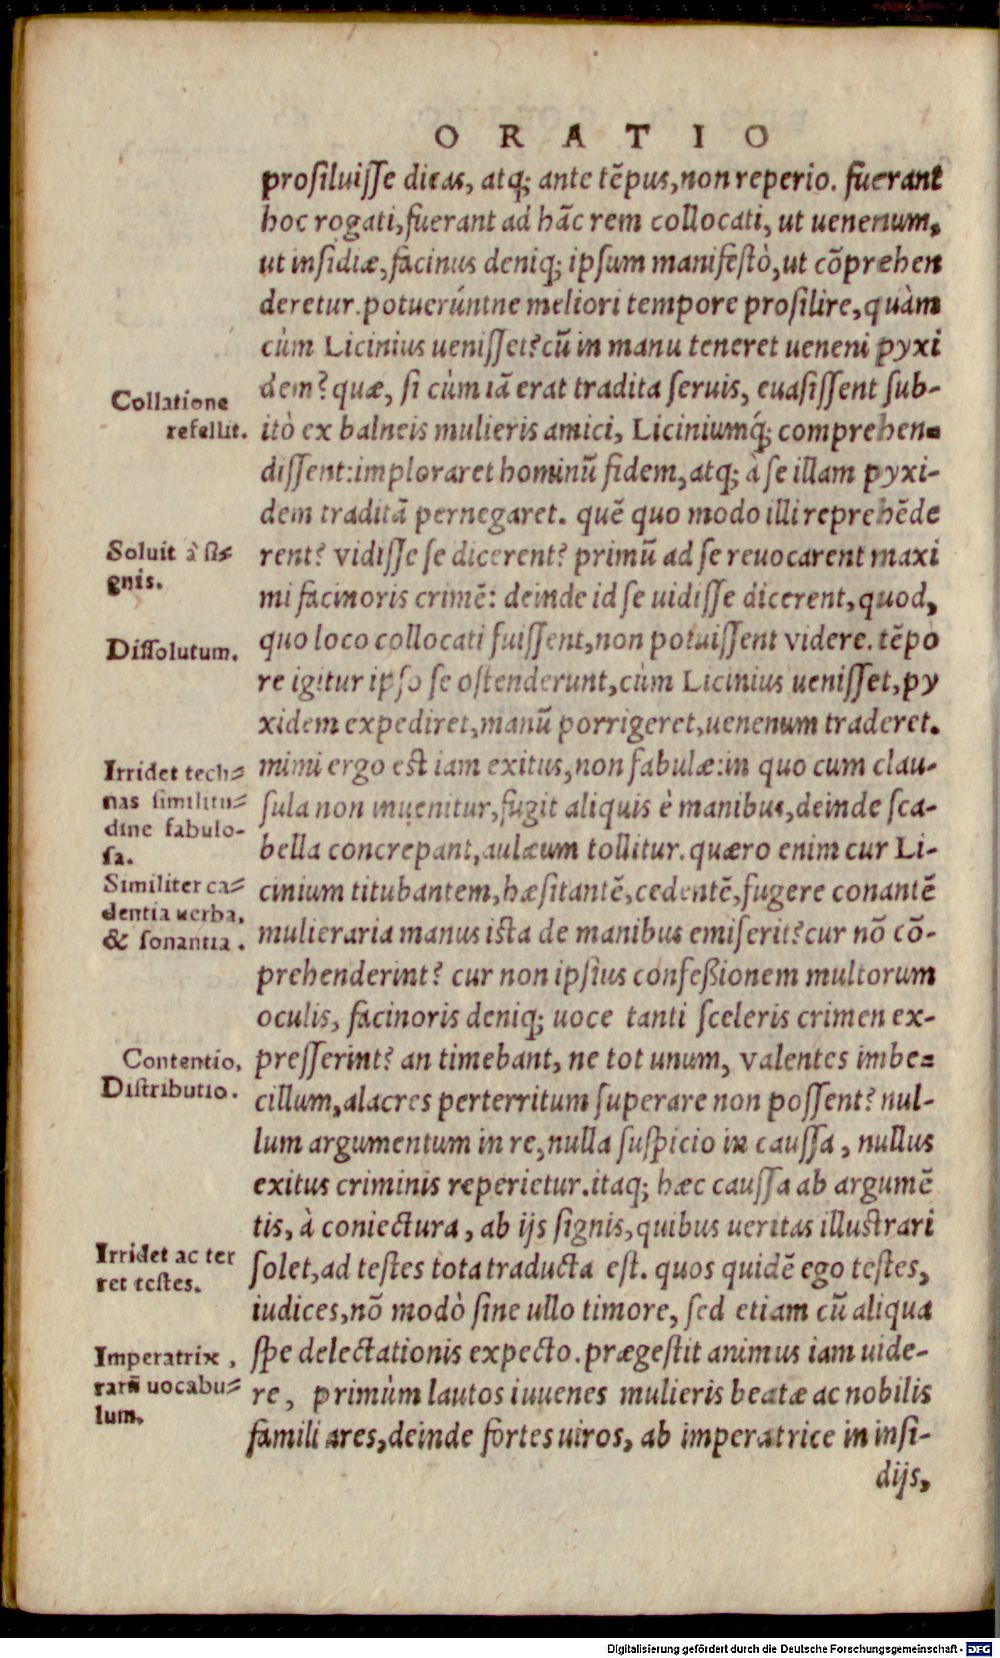 ORATIO
prosiluisse dicas, atq; ante tẽpus, non reperio. fuerant
hoc rogati, fuerant ad hãc rem collocati, ut uenenum,
ut insidiæ, facinus deniq; ipsum manifestò, ut cõprehen
deretur. potuerúntne meliori tempore prosilire, quàm
cùm Licinius uenisset? cũ in manu teneret ueneni pyxi
dem? quæ, si cùm iã erat tradita seruis, euasissent sub-
Collatione
refellit.
itò ex balneis mulieris amici, Liciniumq́; comprehen-
dissent: imploraret hominũ fidem, atq; à se illam pyxi-
dem traditã pernegaret. quẽ quo modo illi reprehẽde
Soluit à si-
gnis.
rent? vidisse se dicerent? primũ ad se reuocarent maxi
mi facinoris crimẽ: deinde id se uidisse dicerent, quod,
Dissolutum.
quo loco collocati fuissent, non potuissent videre. tẽpo
re igitur ipso se ostenderunt, cùm Licinius uenisset, py
xidem expediret, manũ porrigeret, uenenum traderet.
Irridet tech-
nas similitu-
dine fabulo-
sa.
mimi ergo est iam exitus, non fabulæ: in quo cum clau-
sula non inuenitur, fugit aliquis è manibus, deinde sca-
bella concrepant, aulæum tollitur. quæro enim cur Li-
Similiter ca-
dentia uerba,
& sonantia.
cinium titubantem, hæsitantẽ, cedentẽ, fugere conantẽ
mulieraria manus ista de manibus emiserit? cur nõ cõ-
prehenderint? cur non ipsius confeßionem multorum
oculis, facinoris deniq; uoce tanti sceleris crimen ex-
Contentio,
Distributio.
presserint? an timebant, ne tot unum, valentes imbe-
cillum, alacres perterritum superare non possent? nul-
lum argumentum in re, nulla suspicio in caussa, nullus
exitus criminis reperietur. itaq; hæc caussa ab argumẽ
tis, à coniectura, ab ijs signis, quibus ueritas illustrari
Irridet ac ter
ret testes.
solet, ad testes tota traducta est. quos quidẽ ego testes,
iudices, nõ modò sine ullo timore, sed etiam cũ aliqua
Imperatrix,
rarũ uocabu-
lum.
spe delectationis expecto. prægestit animus iam uide-
re, primùm lautos iuuenes mulieris beatæ ac nobilis
familiares, deinde fortes uiros, ab imperatrice in insi-
dijs,
Digitalisierung gefördert durch die Deutsche Forschungsgemeinschaft - DFG